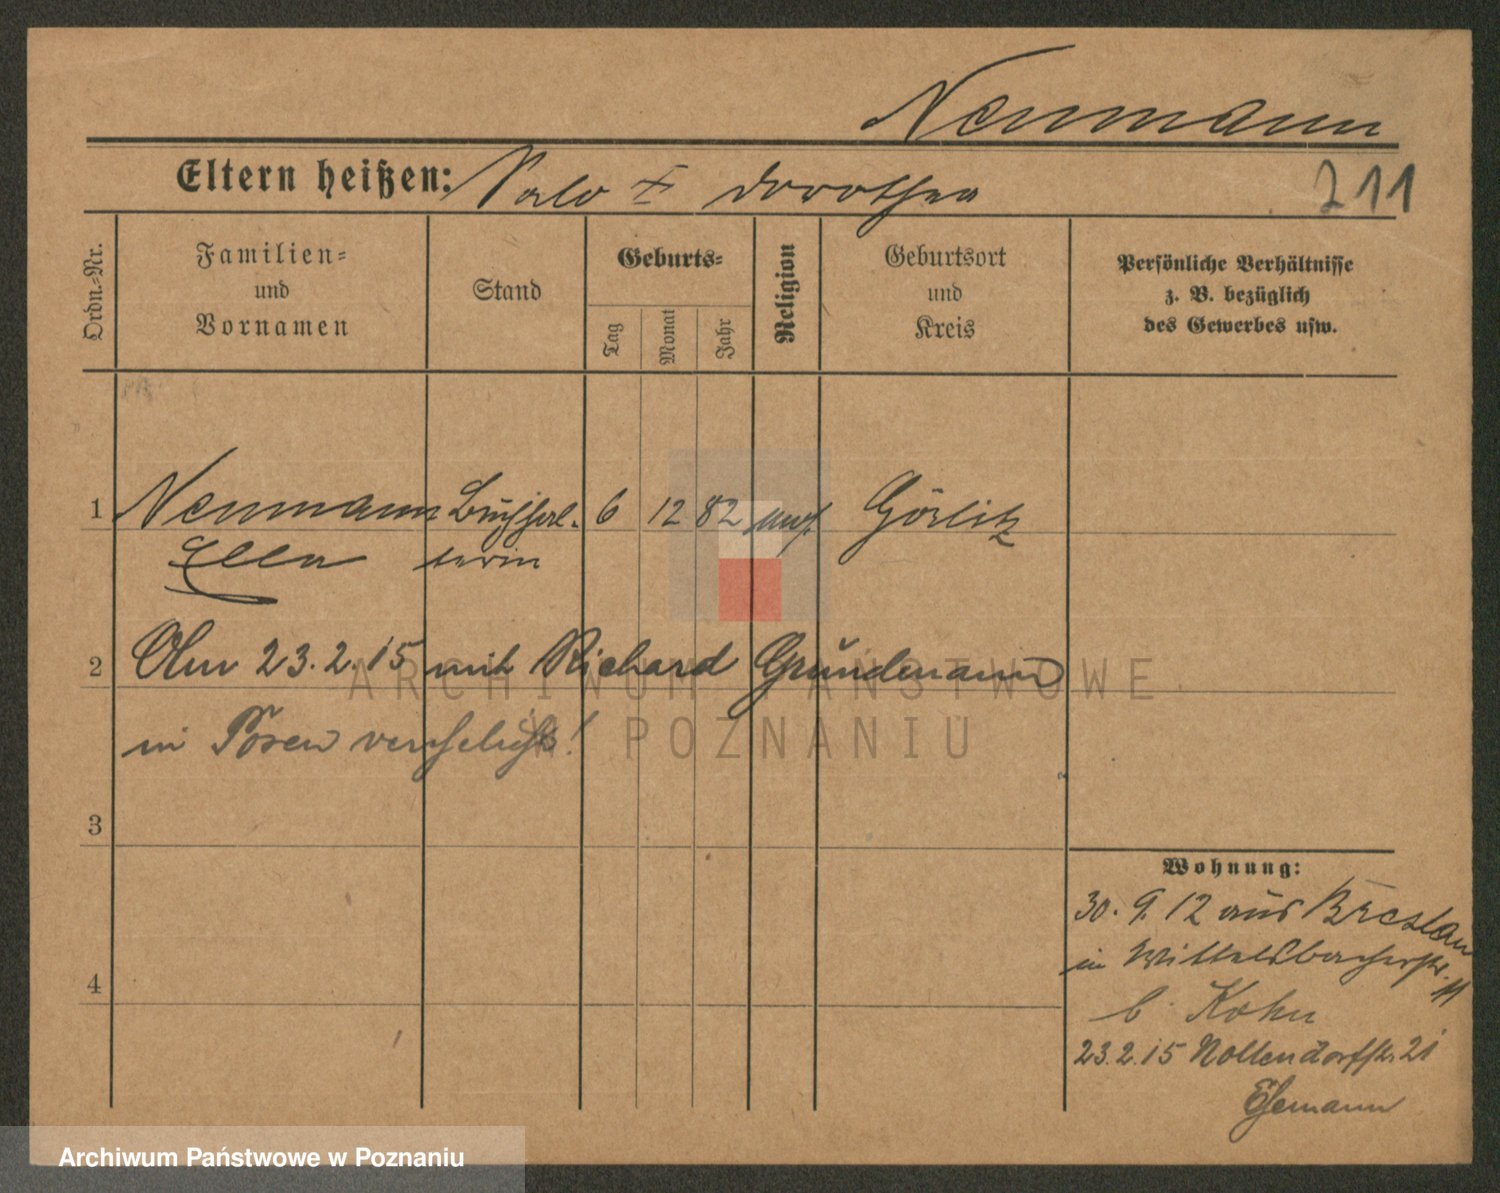 Neumann
Eltern heißen: Salo + Dorothea
211
Ordn.-Nr.
Familien-
und
Vornamen
Stand
Geburts-
Tag
Monat
Jahr
Religion
Geburtsort
und
Kreis
Persönliche Verhältnisse
z. B. bezüglich
des Gewerbes usw.
1 Neumann Buchhal- 6 12 82 mos. Görlitz
Ella terin
2 Am 23.2.15 mit Richard Grundmann
in Posen verehelicht!
3
4
Wohnung:
30. 9. 12 aus Breslau
in Wittelsbacherstr. 11
b. Kohn
23.2.15 Nollendorfstr. 21
Ehemann
ARCHIWUM PAŃSTWOWE
W POZNANIU
Archiwum Państwowe w Poznaniu